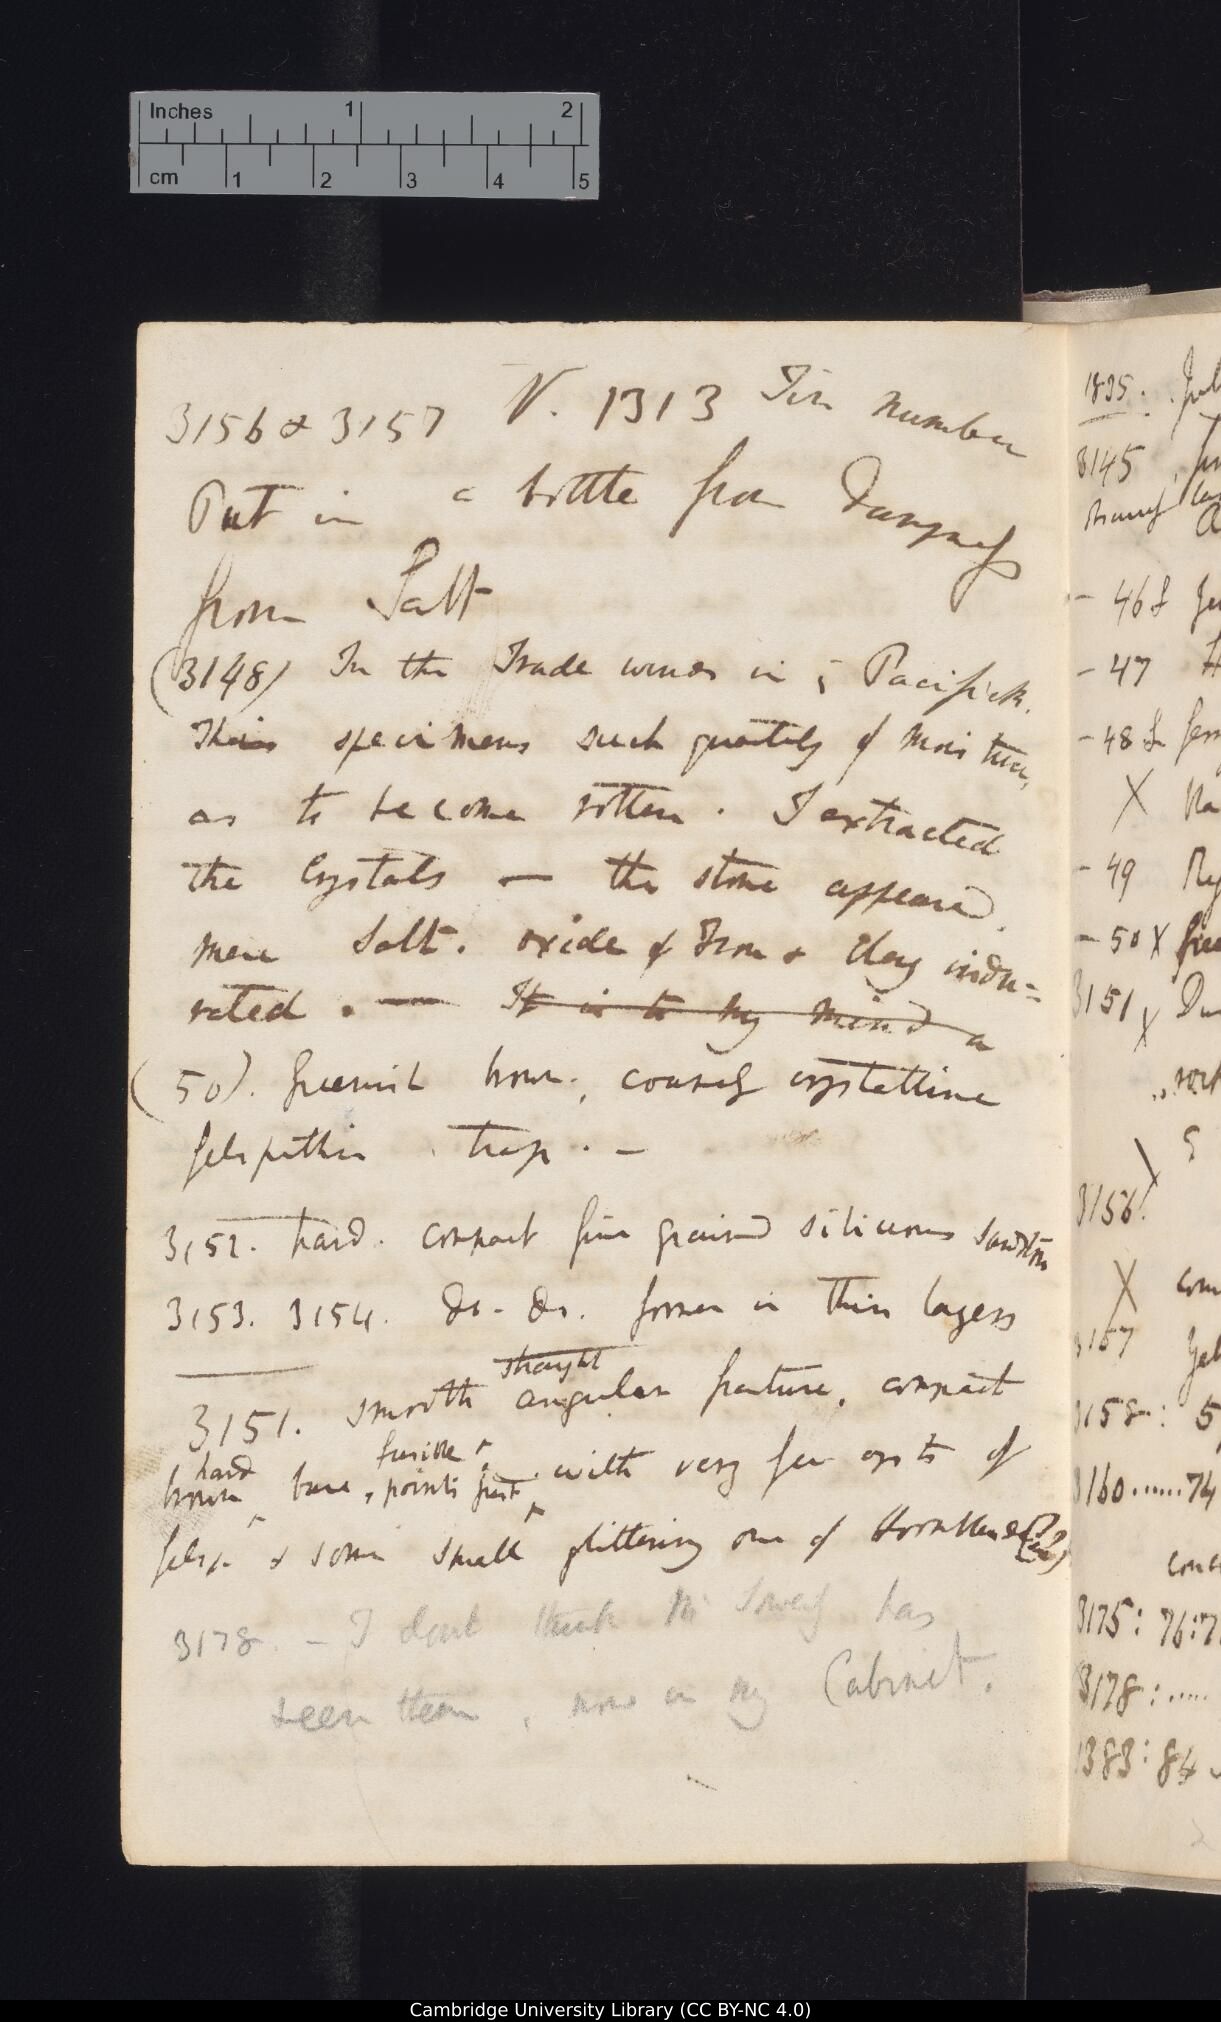 Inches 1 2
cm 1 2 3 4 5
3156 & 3157 V. 1313 Tin number
Put in a bottle from Dampness
from Salt
(3148) In the Trade winds in ye Pacifick.
This specimens such quantity of moisture,
as to become rotten. I extracted
the Crystals — the stone appeared
mere Salt. oxide of Iron & Clay indu=
rated. — It is to my mind a
(50). Greenish brown, coarsely crystalline
felspathic trap. —
3152. hard. compact fine grained siliceous Sandstone
3153. 3154. Do. Do. former in thin layers
straight
3151. smooth angular fracture, compact
hard fusible
brown base, points with very few cryst of
felsp. & some small glittering one of Hornblende (?)
3178. — I dont think Mr Sowerby has
seen them, now in my Cabinet.
1835.
3145
- 46
- 47
- 48
X
- 49
- 50 X
3151 X
3156!
X
3157
3158: 5
3160......74
3175: 76:7
3178:.....
1383: 84
Cambridge University Library (CC BY-NC 4.0)